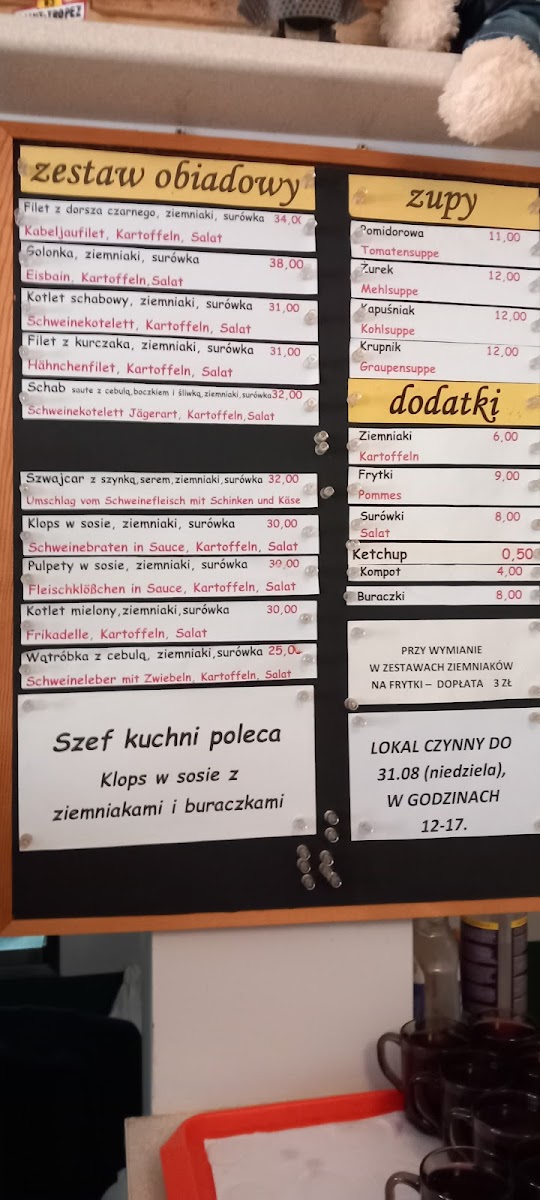 zestaw obiadowy
Filet z dorsza czarnego, ziemniaki, surówka 34,00
Kabeljaufilet, Kartoffeln, Salat
Golonka, ziemniaki, surówka 38,00
Eisbain, Kartoffeln,Salat
Kotlet schabowy, ziemniaki, surówka 31,00
Schweinekotelett, Kartoffeln, Salat
Filet z kurczaka, ziemniaki, surówka 31,00
Hähnchenfilet, Kartoffeln, Salat
Schab saute z cebulą,boczkiem i śliwką,ziemniaki,surówka32,00
Schweinekotelett Jägerart, Kartoffeln,Salat
Szwajcar z szynką,serem,ziemniaki,surówka 32,00
Umschlag vom Schweinefleisch mit Schinken und Käse
Klops w sosie, ziemniaki, surówka 30,00
Schweinebraten in Sauce, Kartoffeln, Salat
Pulpety w sosie, ziemniaki, surówka 30,00
Fleischklößchen in Sauce, Kartoffeln, Salat
Kotlet mielony,ziemniaki,surówka 30,00
Frikadelle, Kartoffeln, Salat
Wątróbka z cebulą, ziemniaki,surówka 25,00
Schweineleber mit Zwiebeln, Kartoffeln, Salat
Szef kuchni poleca
Klops w sosie z
ziemniakami i buraczkami
zupy
Pomidorowa 11,00
Tomatensuppe
Żurek 12,00
Mehlsuppe
Kapuśniak 12,00
Kohlsuppe
Krupnik 12,00
Graupensuppe
dodatki
Ziemniaki 6,00
Kartoffeln
Frytki 9,00
Pommes
Surówki 8,00
Salat
Ketchup 0,50
Kompot 4,00
Buraczki 8,00
PRZY WYMIANIE
W ZESTAWACH ZIEMNIAKÓW
NA FRYTKI – DOPŁATA 3 ZŁ
LOKAL CZYNNY DO
31.08 (niedziela),
W GODZINACH
12-17.